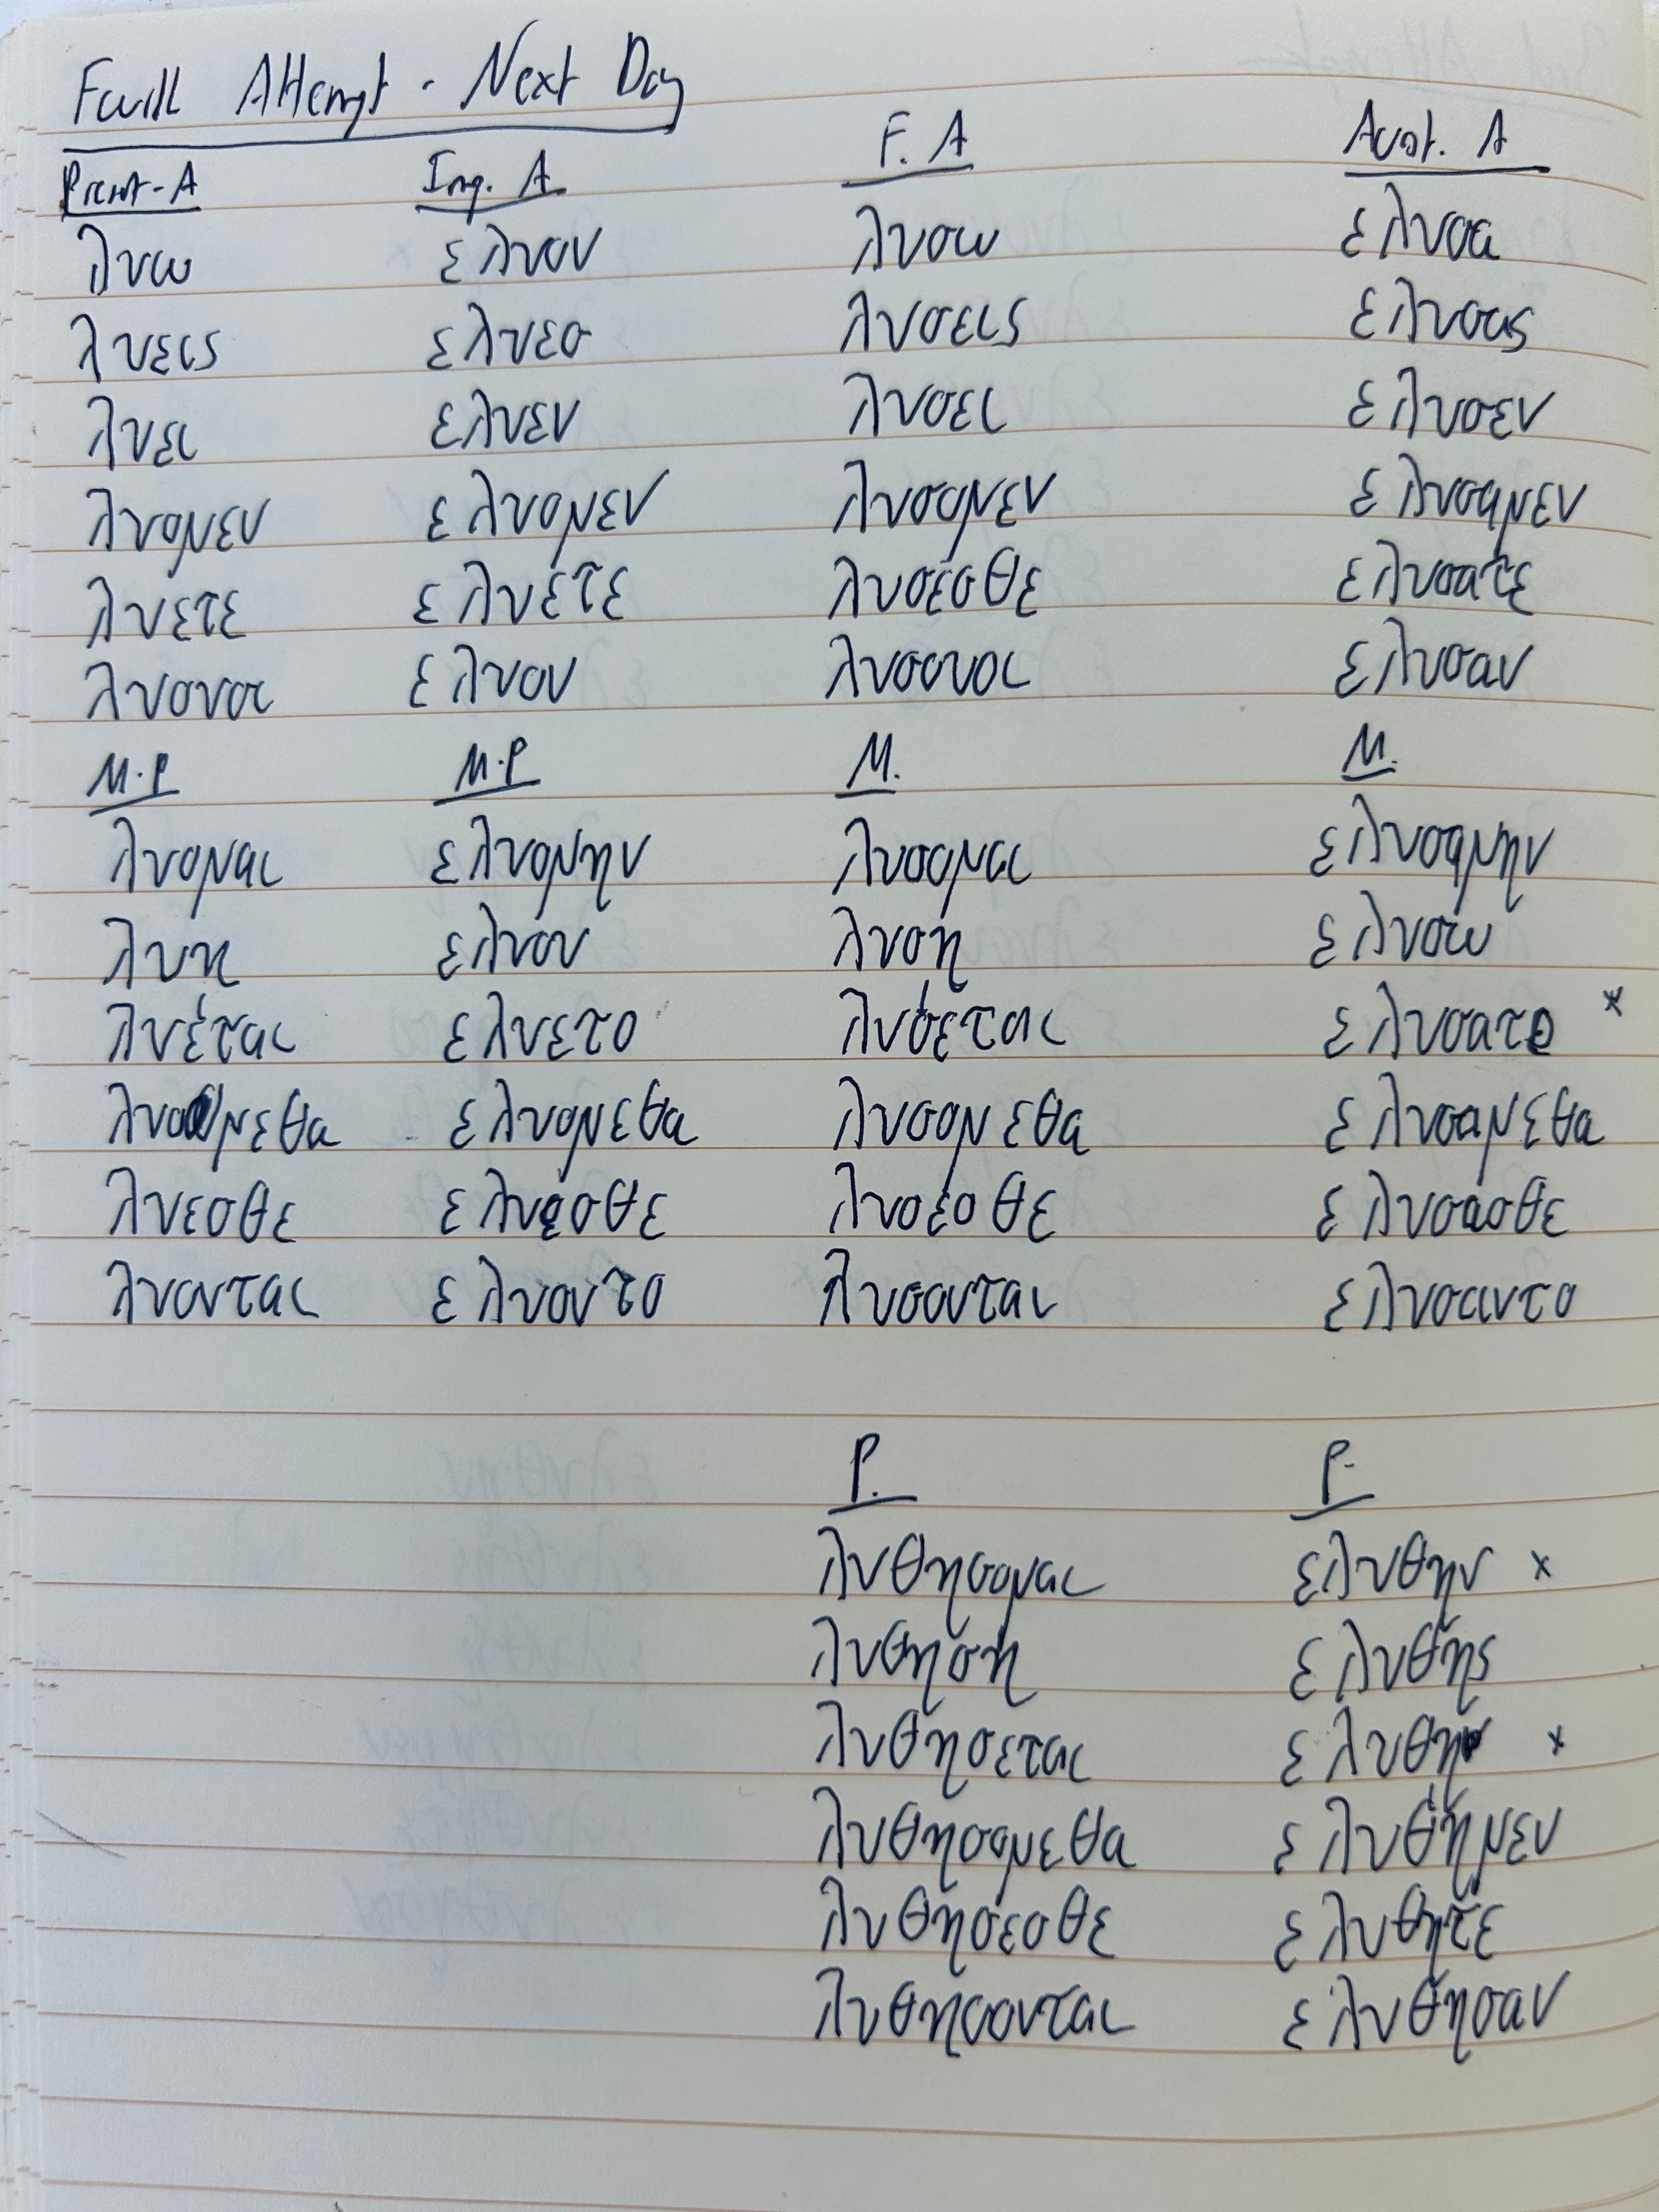 Fourth Attempt - Next Day
Present-A Imp. A F. A Aorist. A
λυω ελυον λυσω ελυσα
λυεις ελυεσ λυσεις ελυσας
λυει ελυεν λυσει ελυσεν
λυομεν ελυομεν λυσομεν ελυσαμεν
λυετε ελυετε λυσεσθε ελυσατε
λυουσι ελυον λυσουσι ελυσαν
M.P M.P M. M.
λυομαι ελυομην λυσομαι ελυσαμην
λυη ελυου λυση ελυσω
λυεται ελυετο λυσεται ελυσατο *
λυομεθα ελυομεθα λυσομεθα ελυσαμεθα
λυεσθε ελυεσθε λυσεσθε ελυσασθε
λυονται ελυοντο λυσονται ελυσαντο
P. P.
λυθησομαι ελυθην x
λυθηση ελυθης
λυθησεται ελυθη x
λυθησομεθα ελυθημεν
λυθησεσθε ελυθητε
λυθησονται ελυθησαν